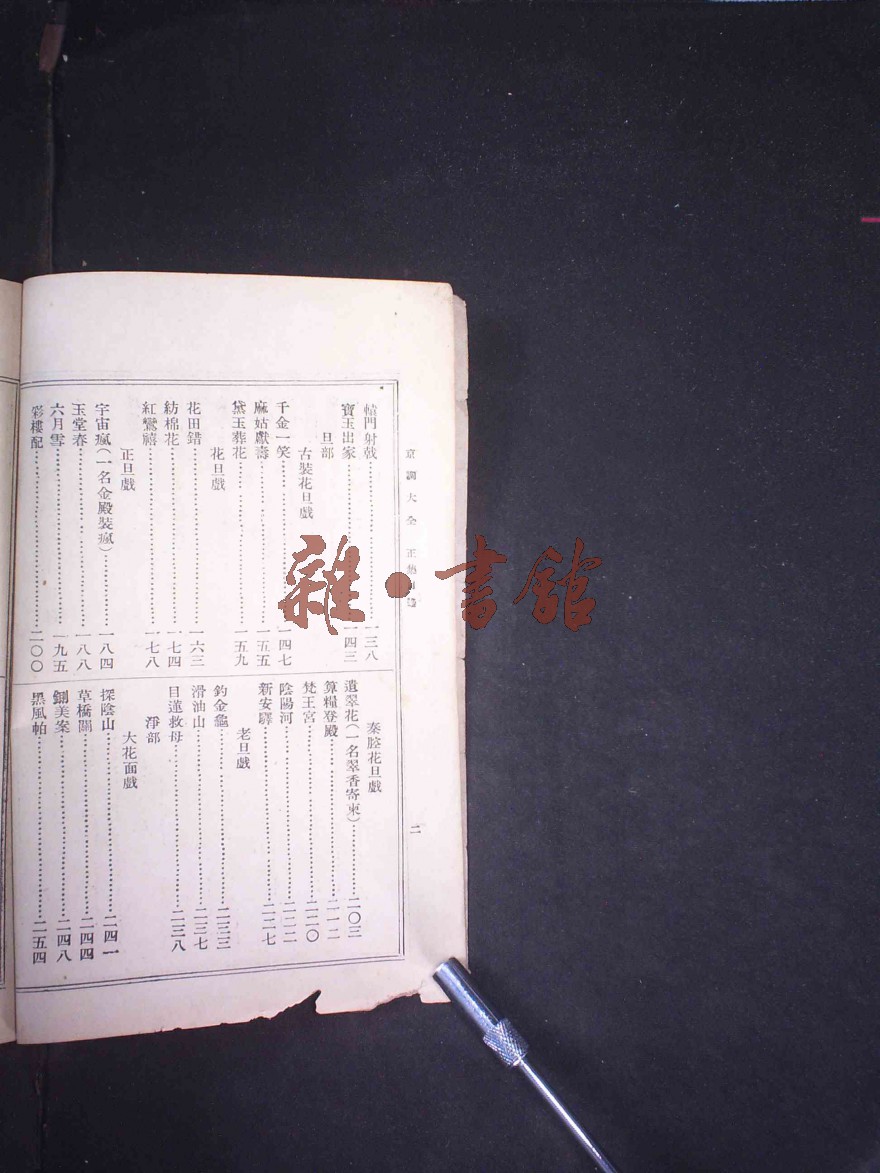 京調大全
二
轅門射戟……一三八
寶玉出家……一四三
旦部
古裝花旦戲
千金一笑……一四七
麻姑獻壽……一五五
黛玉葬花……一五九
花旦戲
花田錯……一六三
紡棉花……一七四
紅鸞禧……一七八
正旦戲
宇宙瘋(一名金殿裝瘋)……一八四
玉堂春……一八八
六月雪……一九五
彩樓配……二〇〇
秦腔花旦戲
遺翠花(一名翠香寄柬)……二〇三
算糧登殿……二一二
梵王宮……二二〇
陰陽河……二二二
新安驛……二二七
老旦戲
釣金龜……二三三
滑油山……二三七
目蓮救母……二三八
淨部
大花面戲
探陰山……二四一
草橋關……二四四
鍘美案……二四八
黑風帕……二五四
雜·書館